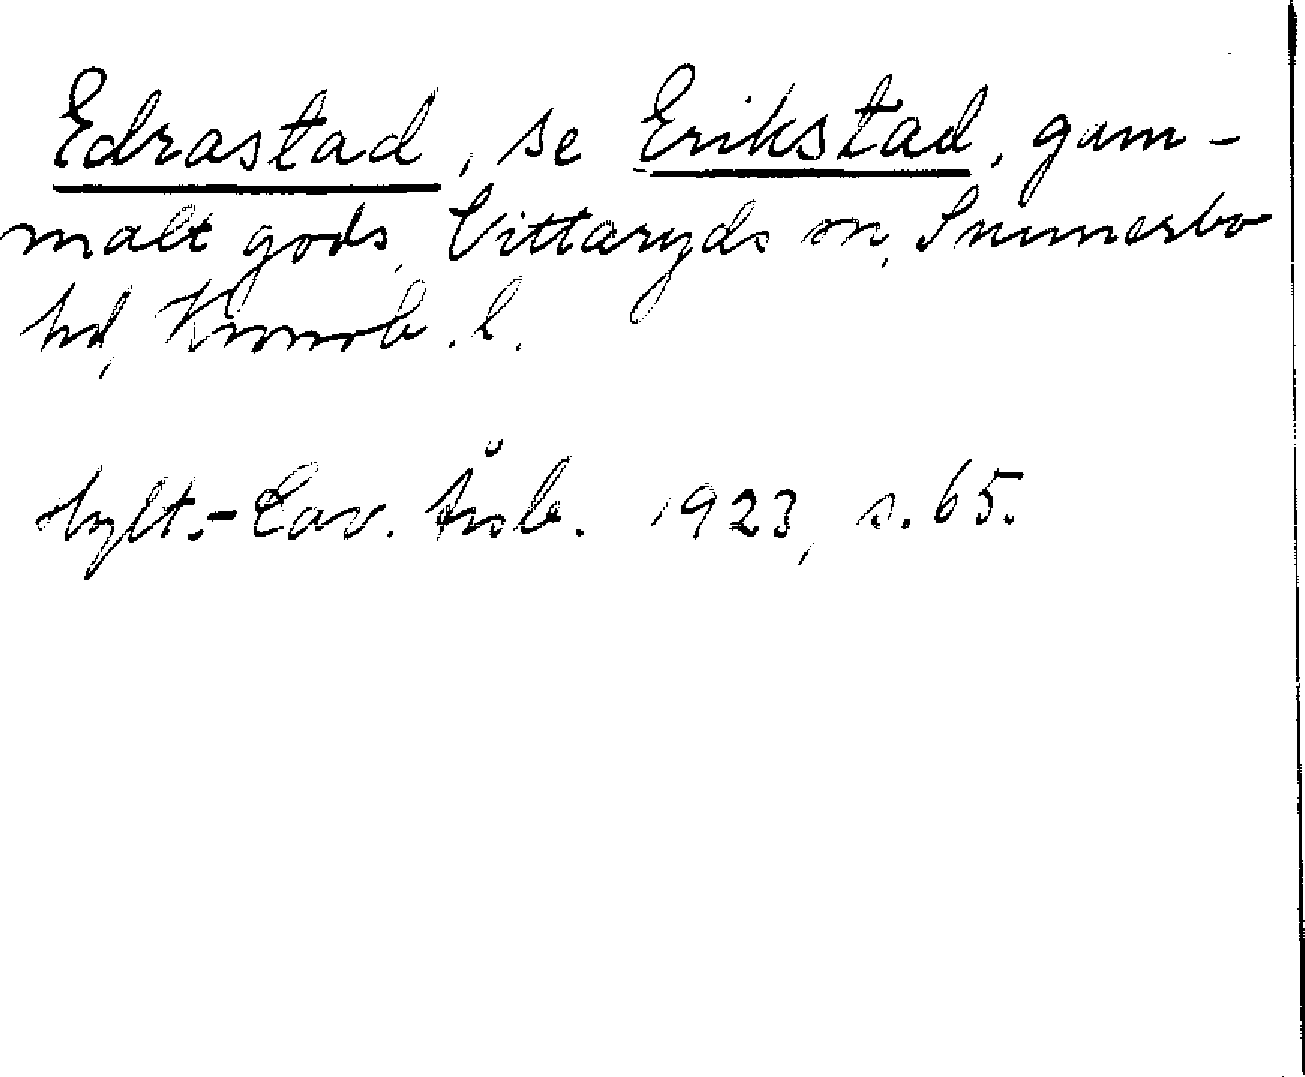 Edrastad, se Erikstad, gam-
malt gods, Vittaryds sn, Sunnerbo
hd, Kronob. l.
Hylt.-Cav. Årsb. 1923, s. 65.